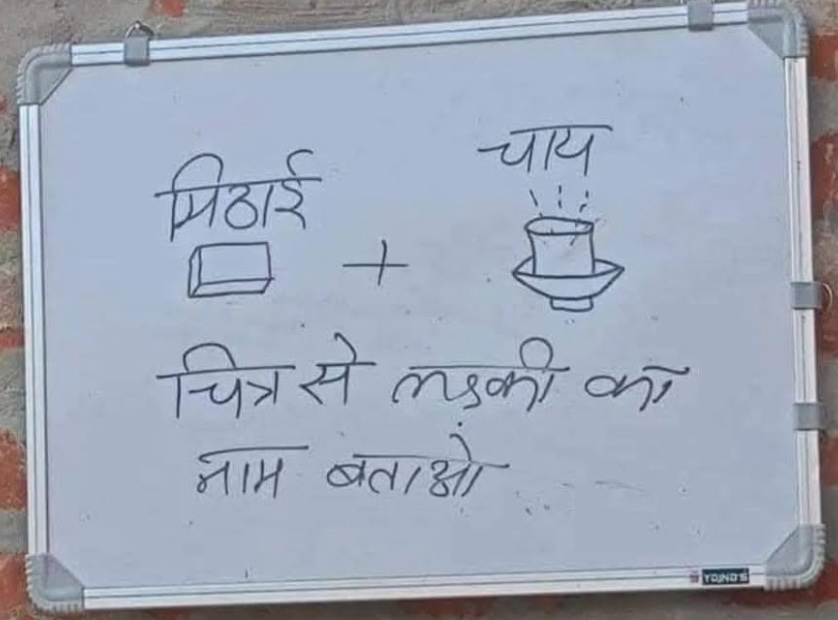 मिठाई
चाय
+
चित्र से लड़की का
नाम बताओ
YOJNO'S